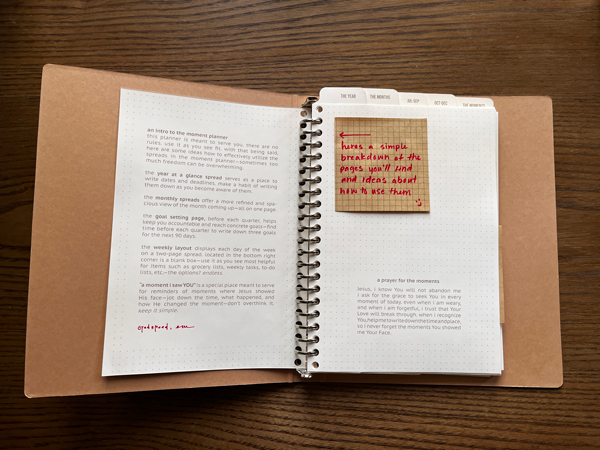 an intro to the moment planner
this planner is meant to serve you, there are no
rules, use it as you see fit, with that being said,
here are some ideas how to effectively utilize the
spreads in the moment planner—sometimes too
much freedom can be overwhelming.
the year at a glance spread serves as a place to
write dates and deadlines, make a habit of writing
them down as you become aware of them.
the monthly spreads offer a more refined and spa-
cious view of the month coming up—as on one page.
the goal setting page, before each quarter, helps
keep you accountable and reach concrete goals—find
time before each quarter to write down three goals
for the next 90 days.
the weekly layout displays each day of the week
on a two-page spread, located in the bottom right
corner is a blank box—use it as you see most helpful
for items such as grocery lists, weekly tasks, to do
lists, etc.—the options? endless.
"a moment i saw YOU" is a special place meant to serve
for reminders of moments where Jesus showed
His face—jot down the time, what happened, and
how He changed the moment—don't overthink it.
keep it simple.
godspeed, em
THE YEAR
THE MONTHS
JUL-SEP
OCT-DEC
THE MOMENTS
heres a simple
breakdown of the
pages you'll find
and ideas about
how to use them
a prayer for the moments
Jesus, i know You will not abandon me
i ask for the grace to see You in every
moment of today, even when i am weary,
and when i am forgetful, i trust that Your
Love will break through. when i recognize
You, help me to write down the time and place,
so i never forget the moments You showed
me Your Face.